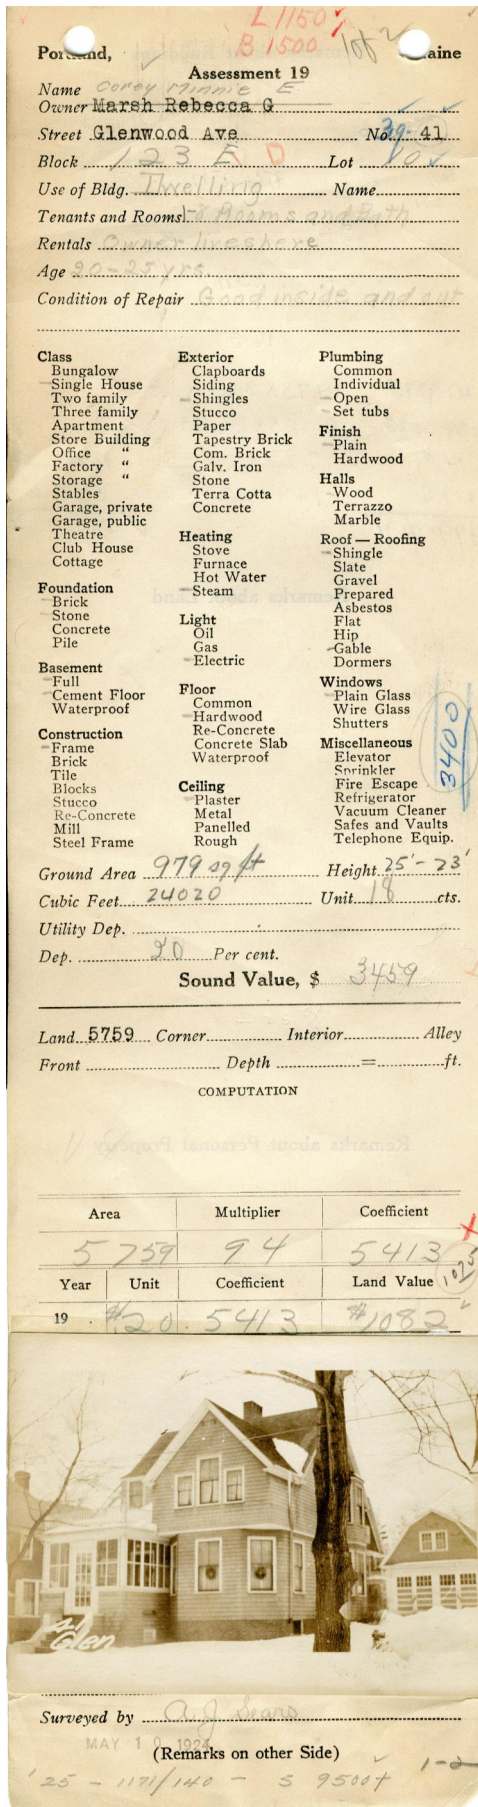 L 1150
B 1500 lot 2
Portland, Maine
Assessment 19
Name Corey Minnie E
Owner Marsh Rebecca G
Street Glenwood Ave No. 39- 41
Block 123 E D Lot 10
Use of Bldg. Dwelling Name
Tenants and Rooms 1-8 Rooms and Bath
Rentals Owner lives here
Age 20-25 yrs
Condition of Repair Good inside and out
Class
Bungalow
Single House
Two family
Three family
Apartment
Store Building
Office "
Factory "
Storage "
Stables
Garage, private
Garage, public
Theatre
Club House
Cottage
Foundation
Brick
Stone
Concrete
Pile
Basement
Full
Cement Floor
Waterproof
Construction
Frame
Brick
Tile
Blocks
Stucco
Re-Concrete
Mill
Steel Frame
Exterior
Clapboards
Siding
Shingles
Stucco
Paper
Tapestry Brick
Com. Brick
Galv. Iron
Stone
Terra Cotta
Concrete
Heating
Stove
Furnace
Hot Water
Steam
Light
Oil
Gas
Electric
Floor
Common
Hardwood
Re-Concrete
Concrete Slab
Waterproof
Ceiling
Plaster
Metal
Panelled
Rough
Plumbing
Common
Individual
Open
Set tubs
Finish
Plain
Hardwood
Halls
Wood
Terrazzo
Marble
Roof — Roofing
Shingle
Slate
Gravel
Prepared
Asbestos
Flat
Hip
Gable
Dormers
Windows
Plain Glass
Wire Glass
Shutters
Miscellaneous
Elevator
Sprinkler
Fire Escape
Refrigerator
Vacuum Cleaner
Safes and Vaults
Telephone Equip.
3400
Ground Area 979 sq ft Height 25'-23'
Cubic Feet 24020 Unit 18 cts.
Utility Dep.
Dep. 20 Per cent.
Sound Value, $ 3459
Land 5759 Corner Interior Alley
Front Depth = ft.
COMPUTATION
Area Multiplier Coefficient
5759 94 5413
Year Unit Coefficient Land Value 1025
19 $20 5413 $1082
41 Glen
Surveyed by A J Sears
MAY 10 1924
(Remarks on other Side)
1-2
'25 - 1171/140 - S 9500+